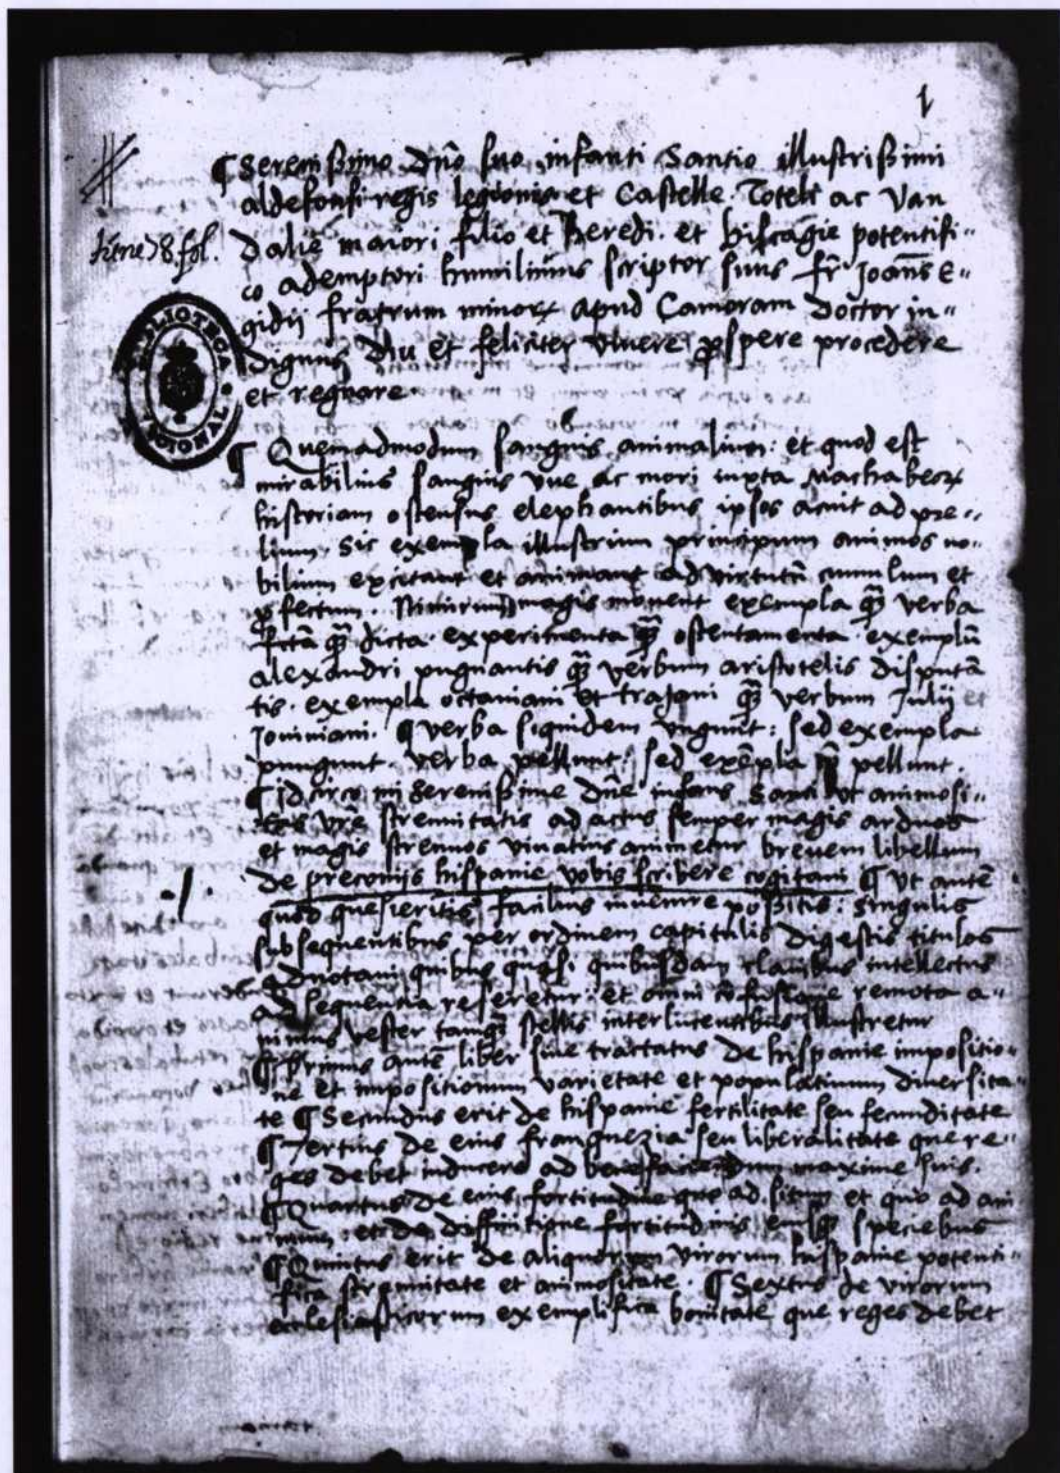 1
¶ Serenissimo dño suo infanti Santio illustrissimi
aldefonsi regis legionis et Castelle Toleti ac Van
dalie maiori filio et heredi. et biscagie potentifi-
co ademptori humilimus scriptor suus fr̃ Joañs E-
gidij fratrum minorꝝ apud Camoram doctor in-
dignus diu et feliciter viuere ꝓspere procedere
et regnare
tiene 78. fol.
BIBLIOTECA NACIONAL
¶ Quemadmodum sanguis animalium: et quod est
mirabilius sanguis vue ac mori iuxta Machabeoꝝ
historiam ostensus elephantibus ipsos acuit ad pre-
lium. Sic exempla illustrium principum animos no-
bilium excitant et animant ad virtutũ cumulum et
ꝓfectum. Nimirum magis monent exempla q̃ verba
fctã q̃ dicta. experimenta q̃ ostentamenta. exemplũ
alexandri pugnantis q̃ verbum aristotelis disputã
tis. exempla octauiani et trajani q̃ verbum Julij et
Jouiniani. ¶ verba siquidem ungunt: sed exempla
pungunt. verba pellunt: sed exẽpla pellunt.
¶ Idcirco mi serenissime dñe infans Santi vt animosi-
tas vrẽ strenuitatis ad actus semper magis arduos
et magis strenuos viuatius animetur breuem libellum
de preconijs hispanie vobis scribere cogitaui ¶ Vt autẽ
quod quesieritis facilius inuenire possitis: singulis
subsequentibus per ordinem capitulis digestis titulos
adnotaui quibus quasi quibusdam clauibus intellectus
ad sequentia reseretur: et omni cõfusione remota a-
nimus vester tamq̃ stellis interlucentibus illustretur
¶ Primus autẽ liber siue tractatus de hispanie impositio-
ne et impositionum varietate et populatiuum diuersita-
te ¶ Secundus erit de hispanie fertilitate seu fecunditate
¶ Tertius de eius franquezia seu liberalitate que re-
ges debet inducere ad benefaciendum maxime suis.
¶ Quartus de eius fortitudine quo ad situm et quo ad ani
mum: et de diffinitione fortitudinis eiusq̃ speciebus
¶ Quintus erit de aliquorum virorum hispanie potenti-
fica strenuitate et animositate. ¶ Sextus de virorum
ecclesiasticorum exemplifica bonitate que reges debet